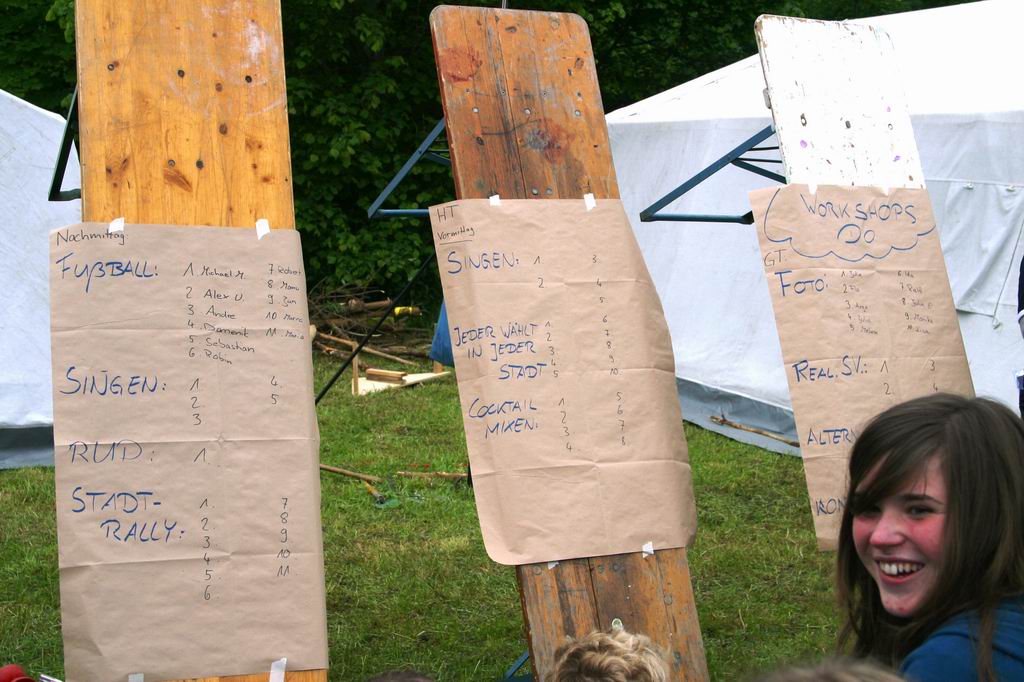 Nachmittag:
FUßBALL: 1 Michael M. 7 Robert
2 Alex U. 8 Manu
3 Andre 9 Jan
4. Dominik 10 Marco
5 Sebastian 11.
6. Robin
SINGEN: 1 4.
2. 5
3
RUD: 1.
STADT- 1. 7
RALLY: 2. 8
3. 9
4 10
5. 11.
6
HT
Vormittag
SINGEN: 1 3.
2 4
5
6
JEDER WÄHLT 1 7
IN JEDER 2. 8
STADT 3. 9
4
5 10
COCKTAIL 1 5
MIXEN: 2 6
3 7
4. 8
WORKSHOPS
DO
GT.
FOTO: 1. Julia 6.
2. 7.
3. 8
4. Julia 9.
5. 10.
REAL. SV.: 1 3
2 4
ALTERN
KON